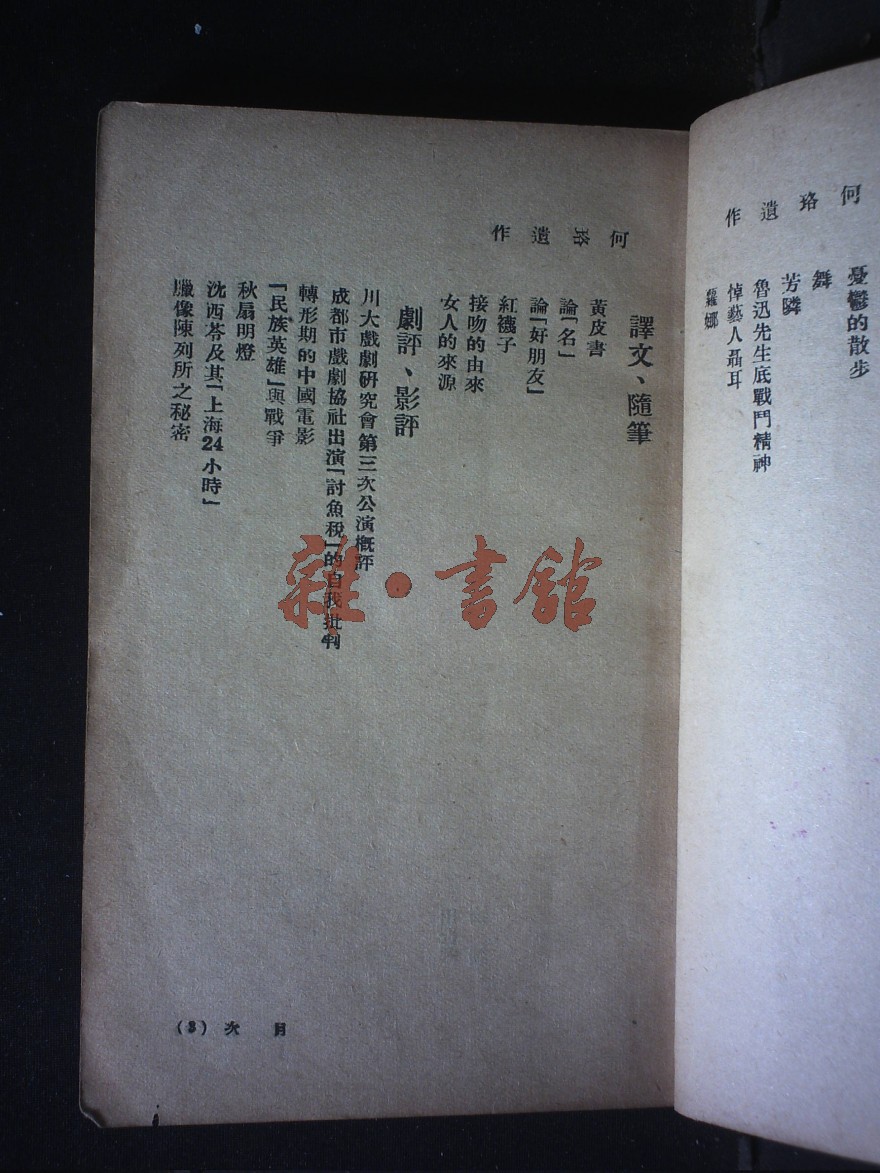 何珞遺作
憂鬱的散步
舞
芳隣
魯迅先生底戰鬥精神
悼藝人聶耳
蘿娜
何珞遺作
譯文、隨筆
黃皮書
論「名」
論「好朋友」
紅襪子
接吻的由來
女人的來源
劇評、影評
川大戲劇研究會第三次公演概評
成都市戲劇協社出演「討魚稅」的自我批判
轉形期的中國電影
「民族英雄」與戰爭
秋扇明燈
沈西苓及其「上海24小時」
臘像陳列所之秘密
目次(3)
雜·書館